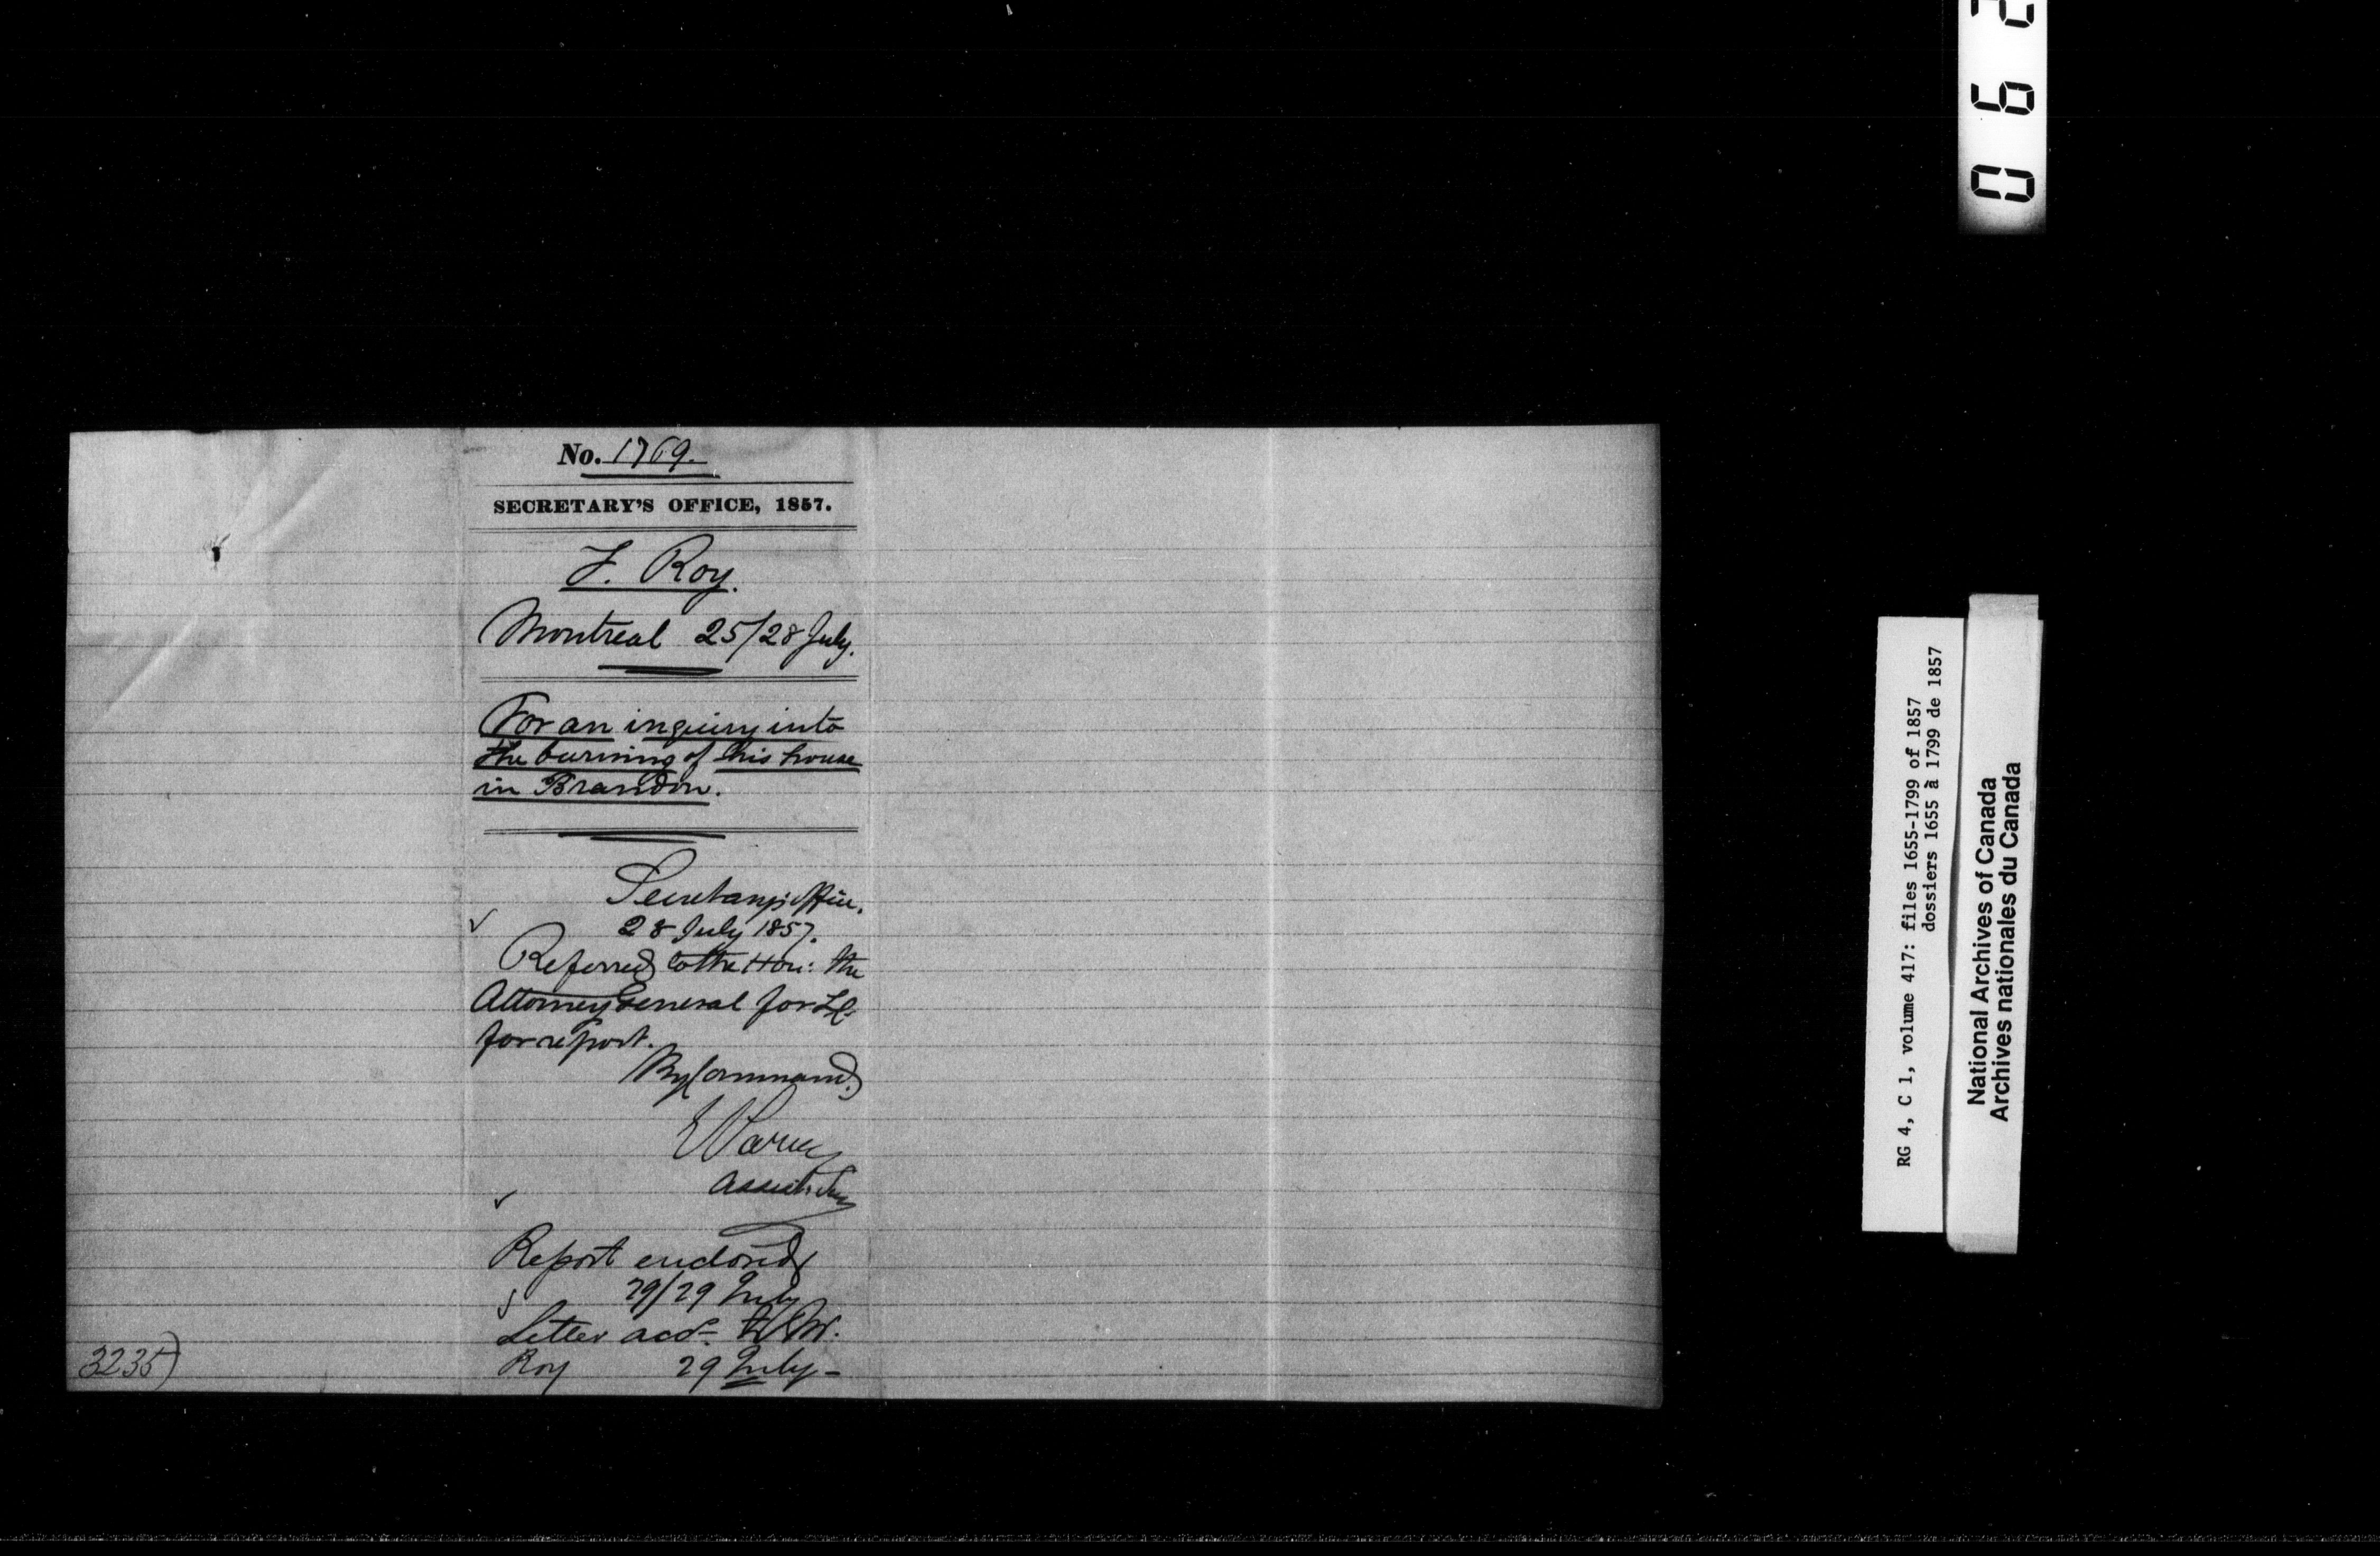 No. 1769.
SECRETARY'S OFFICE, 1857.
F. Roy.
Montreal 25/28 July.
For an inquiry into
the burning of his house
in Brandon.
Secretary's Office.
28 July 1857.
Referred to the Hon: the
Attorney General for LC
for report.
By Command
Assist. Secy
Report enclosed
29/29 July
Letter acd. to Mr.
Roy 29 July -
3235)
0 6 2
RG 4, C 1, volume 417: files 1655-1799 of 1857
dossiers 1655 à 1799 de 1857
National Archives of Canada
Archives nationales du Canada